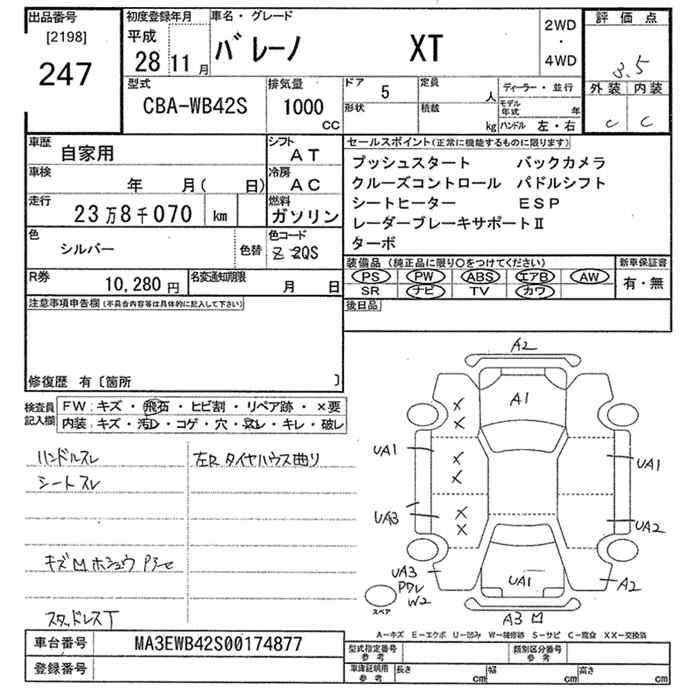 出品番号 初度登録年月 車名・グレード 2WD ・ 4WD 評価点
[2198] 平成
247 28 11月 バレーノ XT 3.5
型式 排気量 ドア 5 定員 人 ディーラー・並行 外装 内装
CBA-WB42S 1000 cc 形状 積載 kg モデル年式 年 C C
ハンドル 左・右
車歴 自家用 シフト AT セールスポイント(正常に機能するものに限ります)
車検 年 月( 日) 冷房 AC プッシュスタート バックカメラ
走行 23万8千070 km 燃料 ガソリン クルーズコントロール パドルシフト
シートヒーター ESP
色 シルバー 色替 色コード Z2QS レーダーブレーキサポートⅡ
ターボ
R券 10,280円 名変通知期限 月 日 装備品(純正品に限り○をつけてください) 新車保証書
PS PW ABS エアB AW 有・無
SR ナビ TV カワ
注意事項申告欄(不具合内容等は具体的に記入して下さい) 後日品
修復歴 有〔箇所 〕
検査員記入欄 FW:キズ・飛石・ヒビ割・リペア跡・×要
内装:キズ・汚レ・コゲ・穴・スレ・キレ・破レ
ハンドルスレ 左R タイヤハウス曲り
シートスレ
スタッドレスT
A2
A1
UA1 UA1
UA3 UA2
UA3 W2 UA1 A2
スペア A3
A-キズ E-エクボ U-凹み W-補修跡 S-サビ C-腐食 XX-交換済
車台番号 MA3EWB42S00174877 型式指定番号 参考 類別区分番号 参考
登録番号 車庫証明用 参考 長さ cm 幅 cm 高さ cm